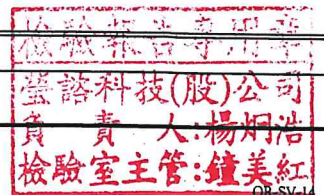 檢驗報告專用章
瑩諮科技(股)公司
負 責 人:楊炯浩
檢驗室主管:鐘美紅
QR-SV-14